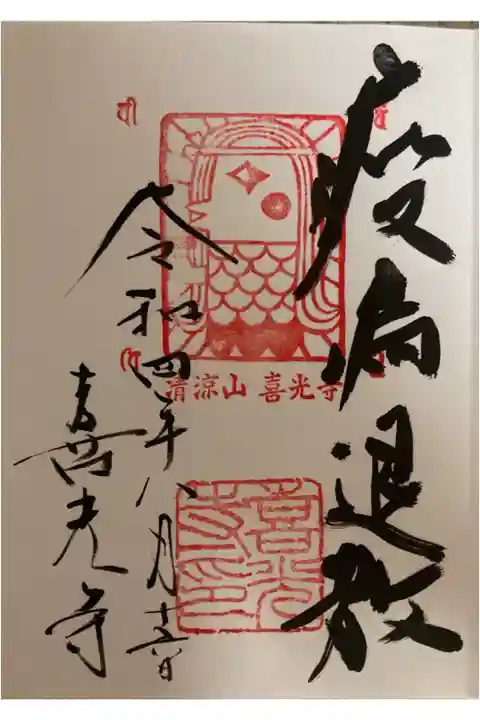 疫病退散
令和四年八月十六日
喜光寺
清涼山 喜光寺
喜光寺印